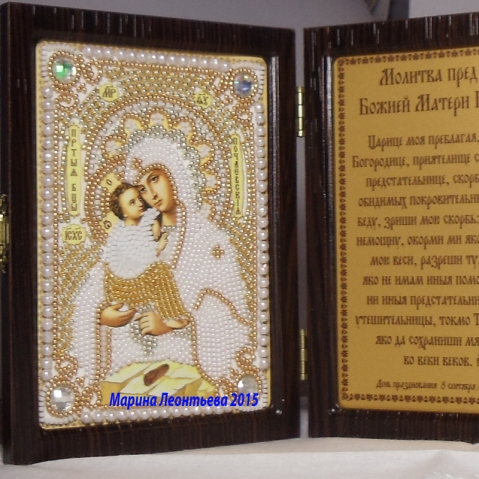 МР ѲУ
ПРТЫЯ БЦЫ
ПОЧАЕВСКІЯ
ІС ХС
Марина Леонтьева 2015
Молитва пред
Божией Матери
Царице моя преблагая,
Богородице, приятелище с
предстательнице, скорб
обидимых покровительни
беду, зриши мою скорбь:
немощну, окорми мя яко
мою веси, разреши ту
яко не имам иныя помо
ни иныя предстательни
утешительницы, токмо Т
яко да сохраниши мя
во веки веков.
День празднования 8 сентября